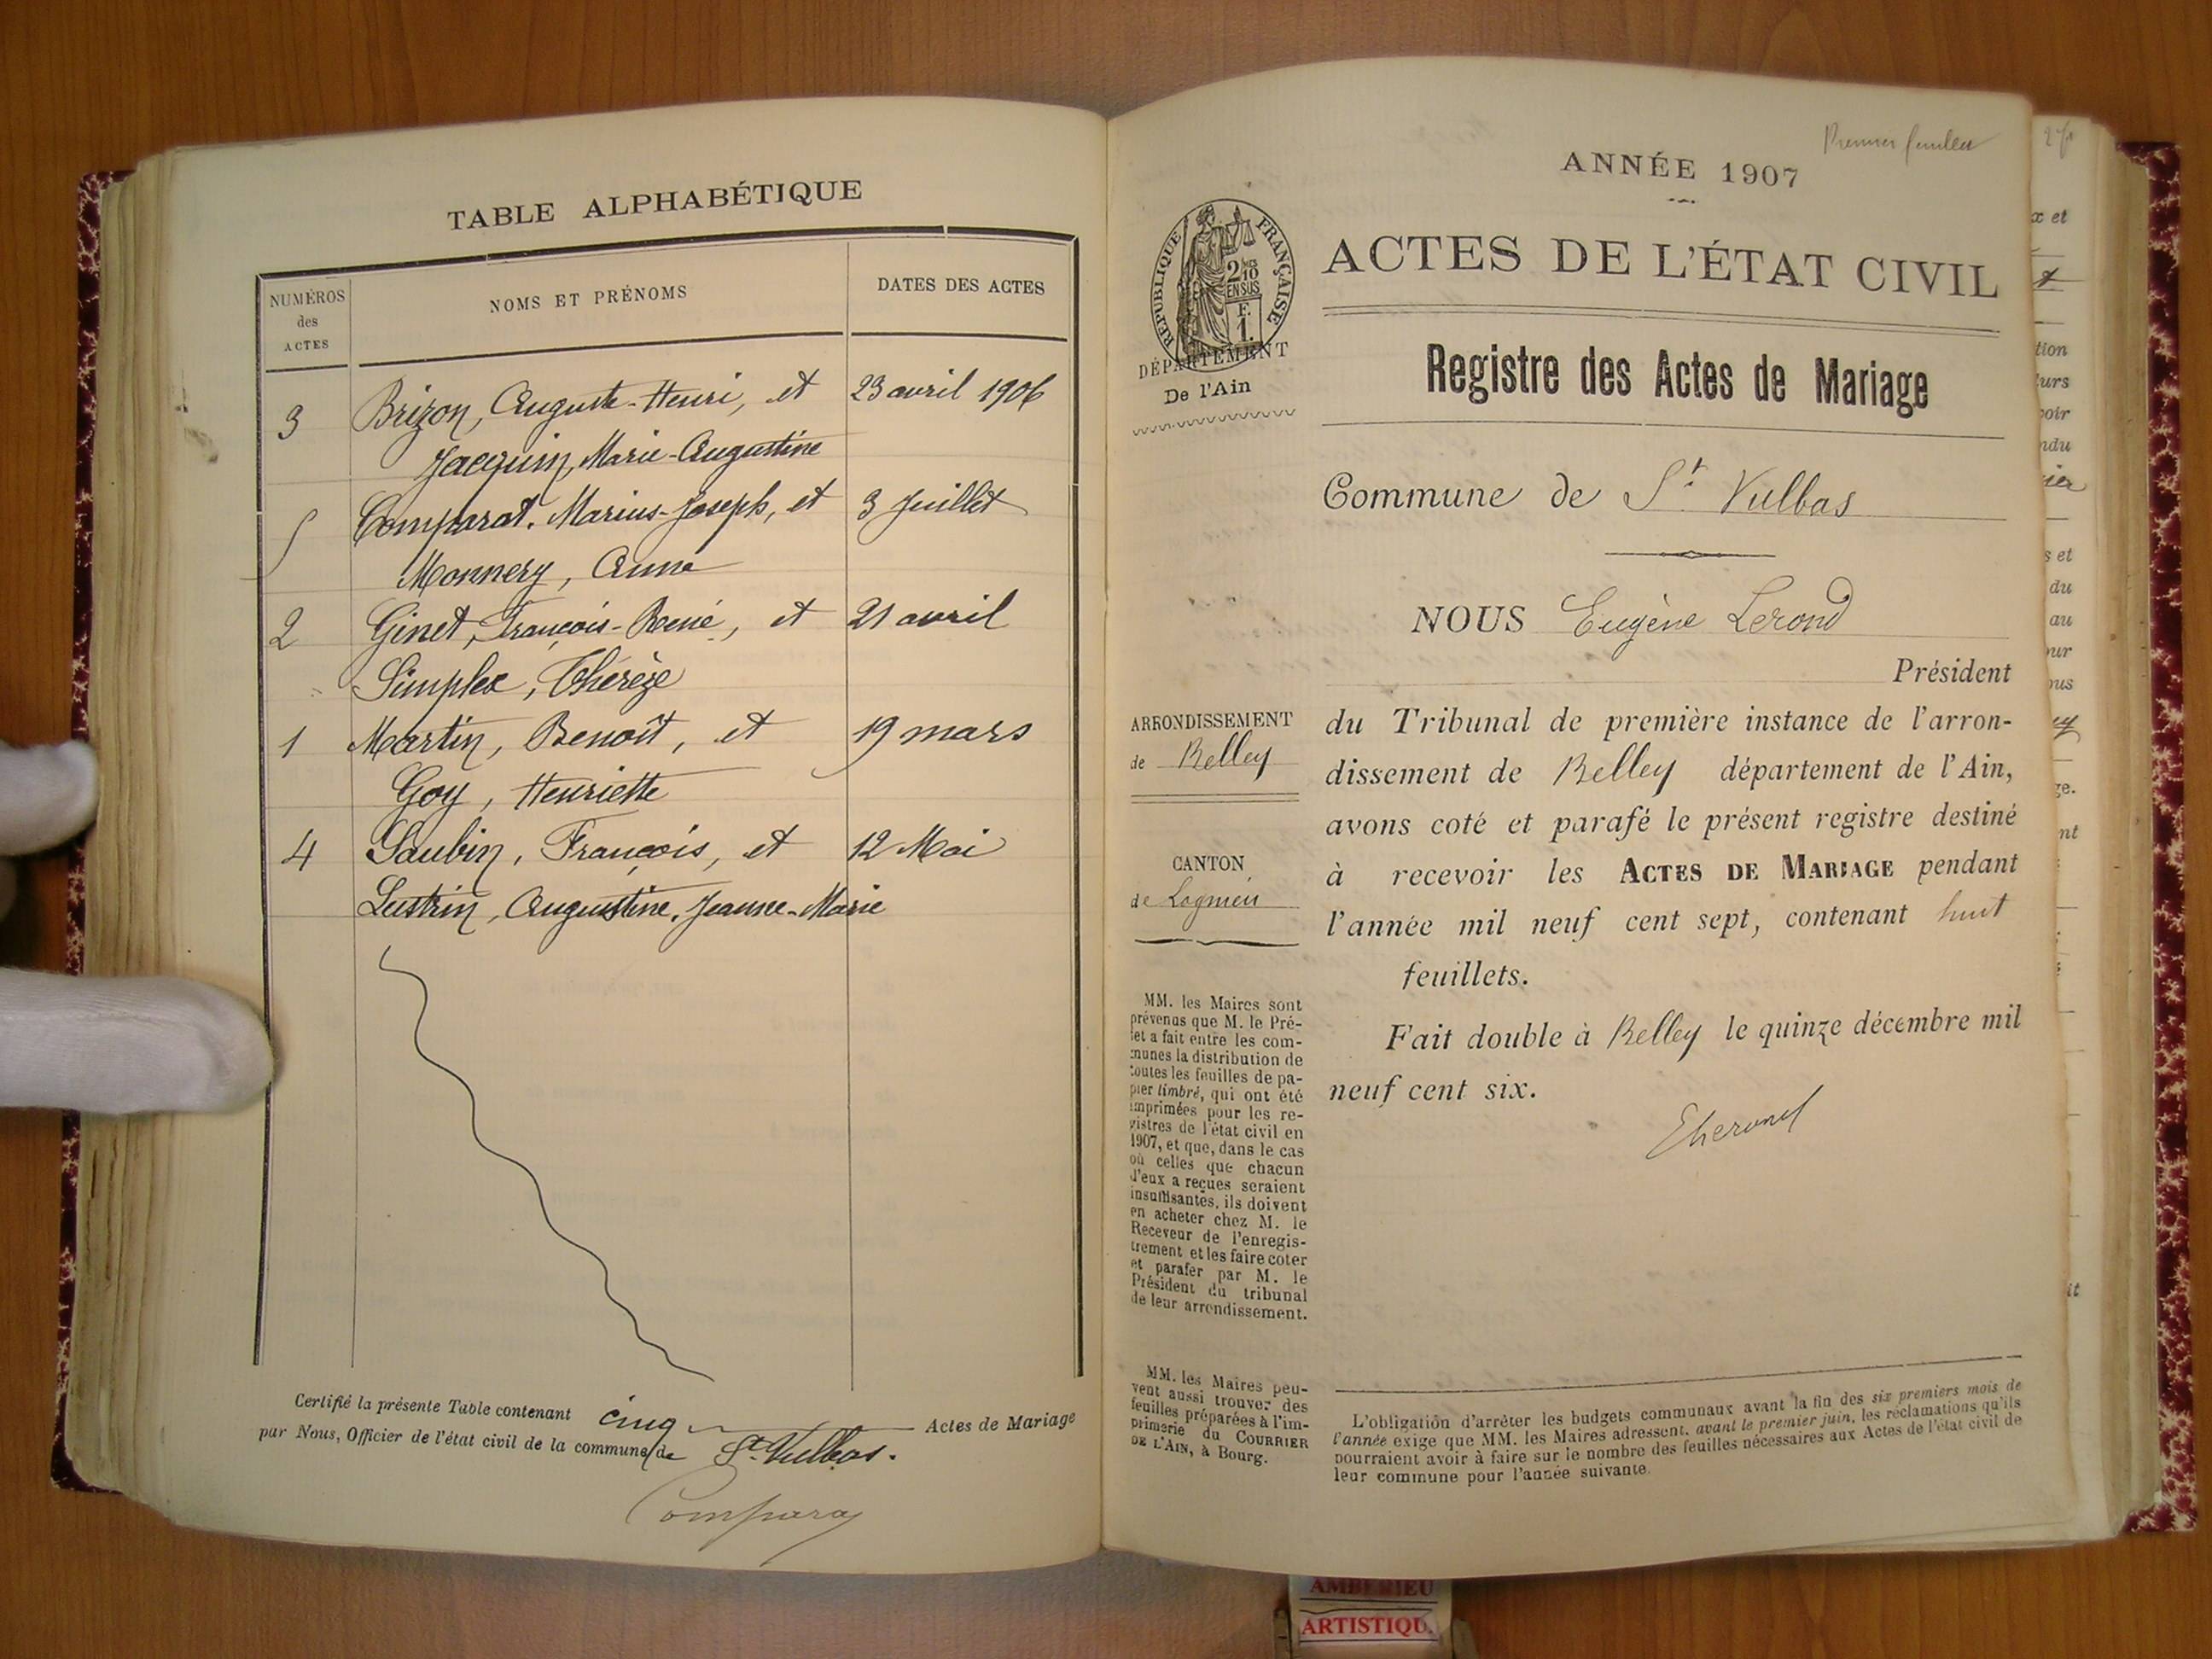 TABLE ALPHABÉTIQUE
NUMÉROS
des
ACTES
NOMS ET PRÉNOMS
DATES DES ACTES
3 Brizon, Auguste-Henri, et 23 avril 1906
Jacquin, Marie-Augustine
5 Comparat, Marius-Joseph, et 3 Juillet
Monnery, Anna
2 Ginet, François-René, et 21 avril
Simplex, Thérèze
1 Martin, Benoît, et 19 mars
Goy, Henriette
4 Saubin, François, et 12 Mai
Lustrin, Augustine, Jeanne-Marie
Certifié la présente Table contenant cinq Actes de Mariage
par Nous, Officier de l'état civil de la commune de St Vulbas.
Comparat
Premier feuillet
ANNÉE 1907
RÉPUBLIQUE FRANÇAISE
2/10
EN SUS
F.
1.
DÉPARTEMENT
De l'Ain
ACTES DE L'ÉTAT CIVIL
Registre des Actes de Mariage
Commune de St. Vulbas
NOUS Eugène Lerond
Président
du Tribunal de première instance de l'arron-
dissement de Belley département de l'Ain,
avons coté et parafé le présent registre destiné
à recevoir les ACTES DE MARIAGE pendant
l'année mil neuf cent sept, contenant huit
feuillets.
Fait double à Belley le quinze décembre mil
neuf cent six.
ARRONDISSEMENT
de Belley
CANTON
de Lagnieu
MM. les Maires sont
prévenus que M. le Pré-
fet a fait entre les com-
munes la distribution de
toutes les feuilles de pa-
pier timbré, qui ont été
imprimées pour les re-
gistres de l'état civil en
1907, et que, dans le cas
où celles que chacun
d'eux a reçues seraient
insuffisantes, ils doivent
en acheter chez M. le
Receveur de l'enregis-
trement et les faire coter
et parafer par M. le
Président du tribunal
de leur arrondissement.
MM. les Maires peu-
vent aussi trouver des
feuilles préparées à l'im-
primerie du COURRIER
DE L'AIN, à Bourg.
L'obligation d'arrêter les budgets communaux avant la fin des six premiers mois de
l'année exige que MM. les Maires adressent, avant le premier juin, les réclamations qu'ils
pourraient avoir à faire sur le nombre des feuilles nécessaires aux Actes de l'état civil de
leur commune pour l'année suivante.
AMBERIEU
ARTISTIQU